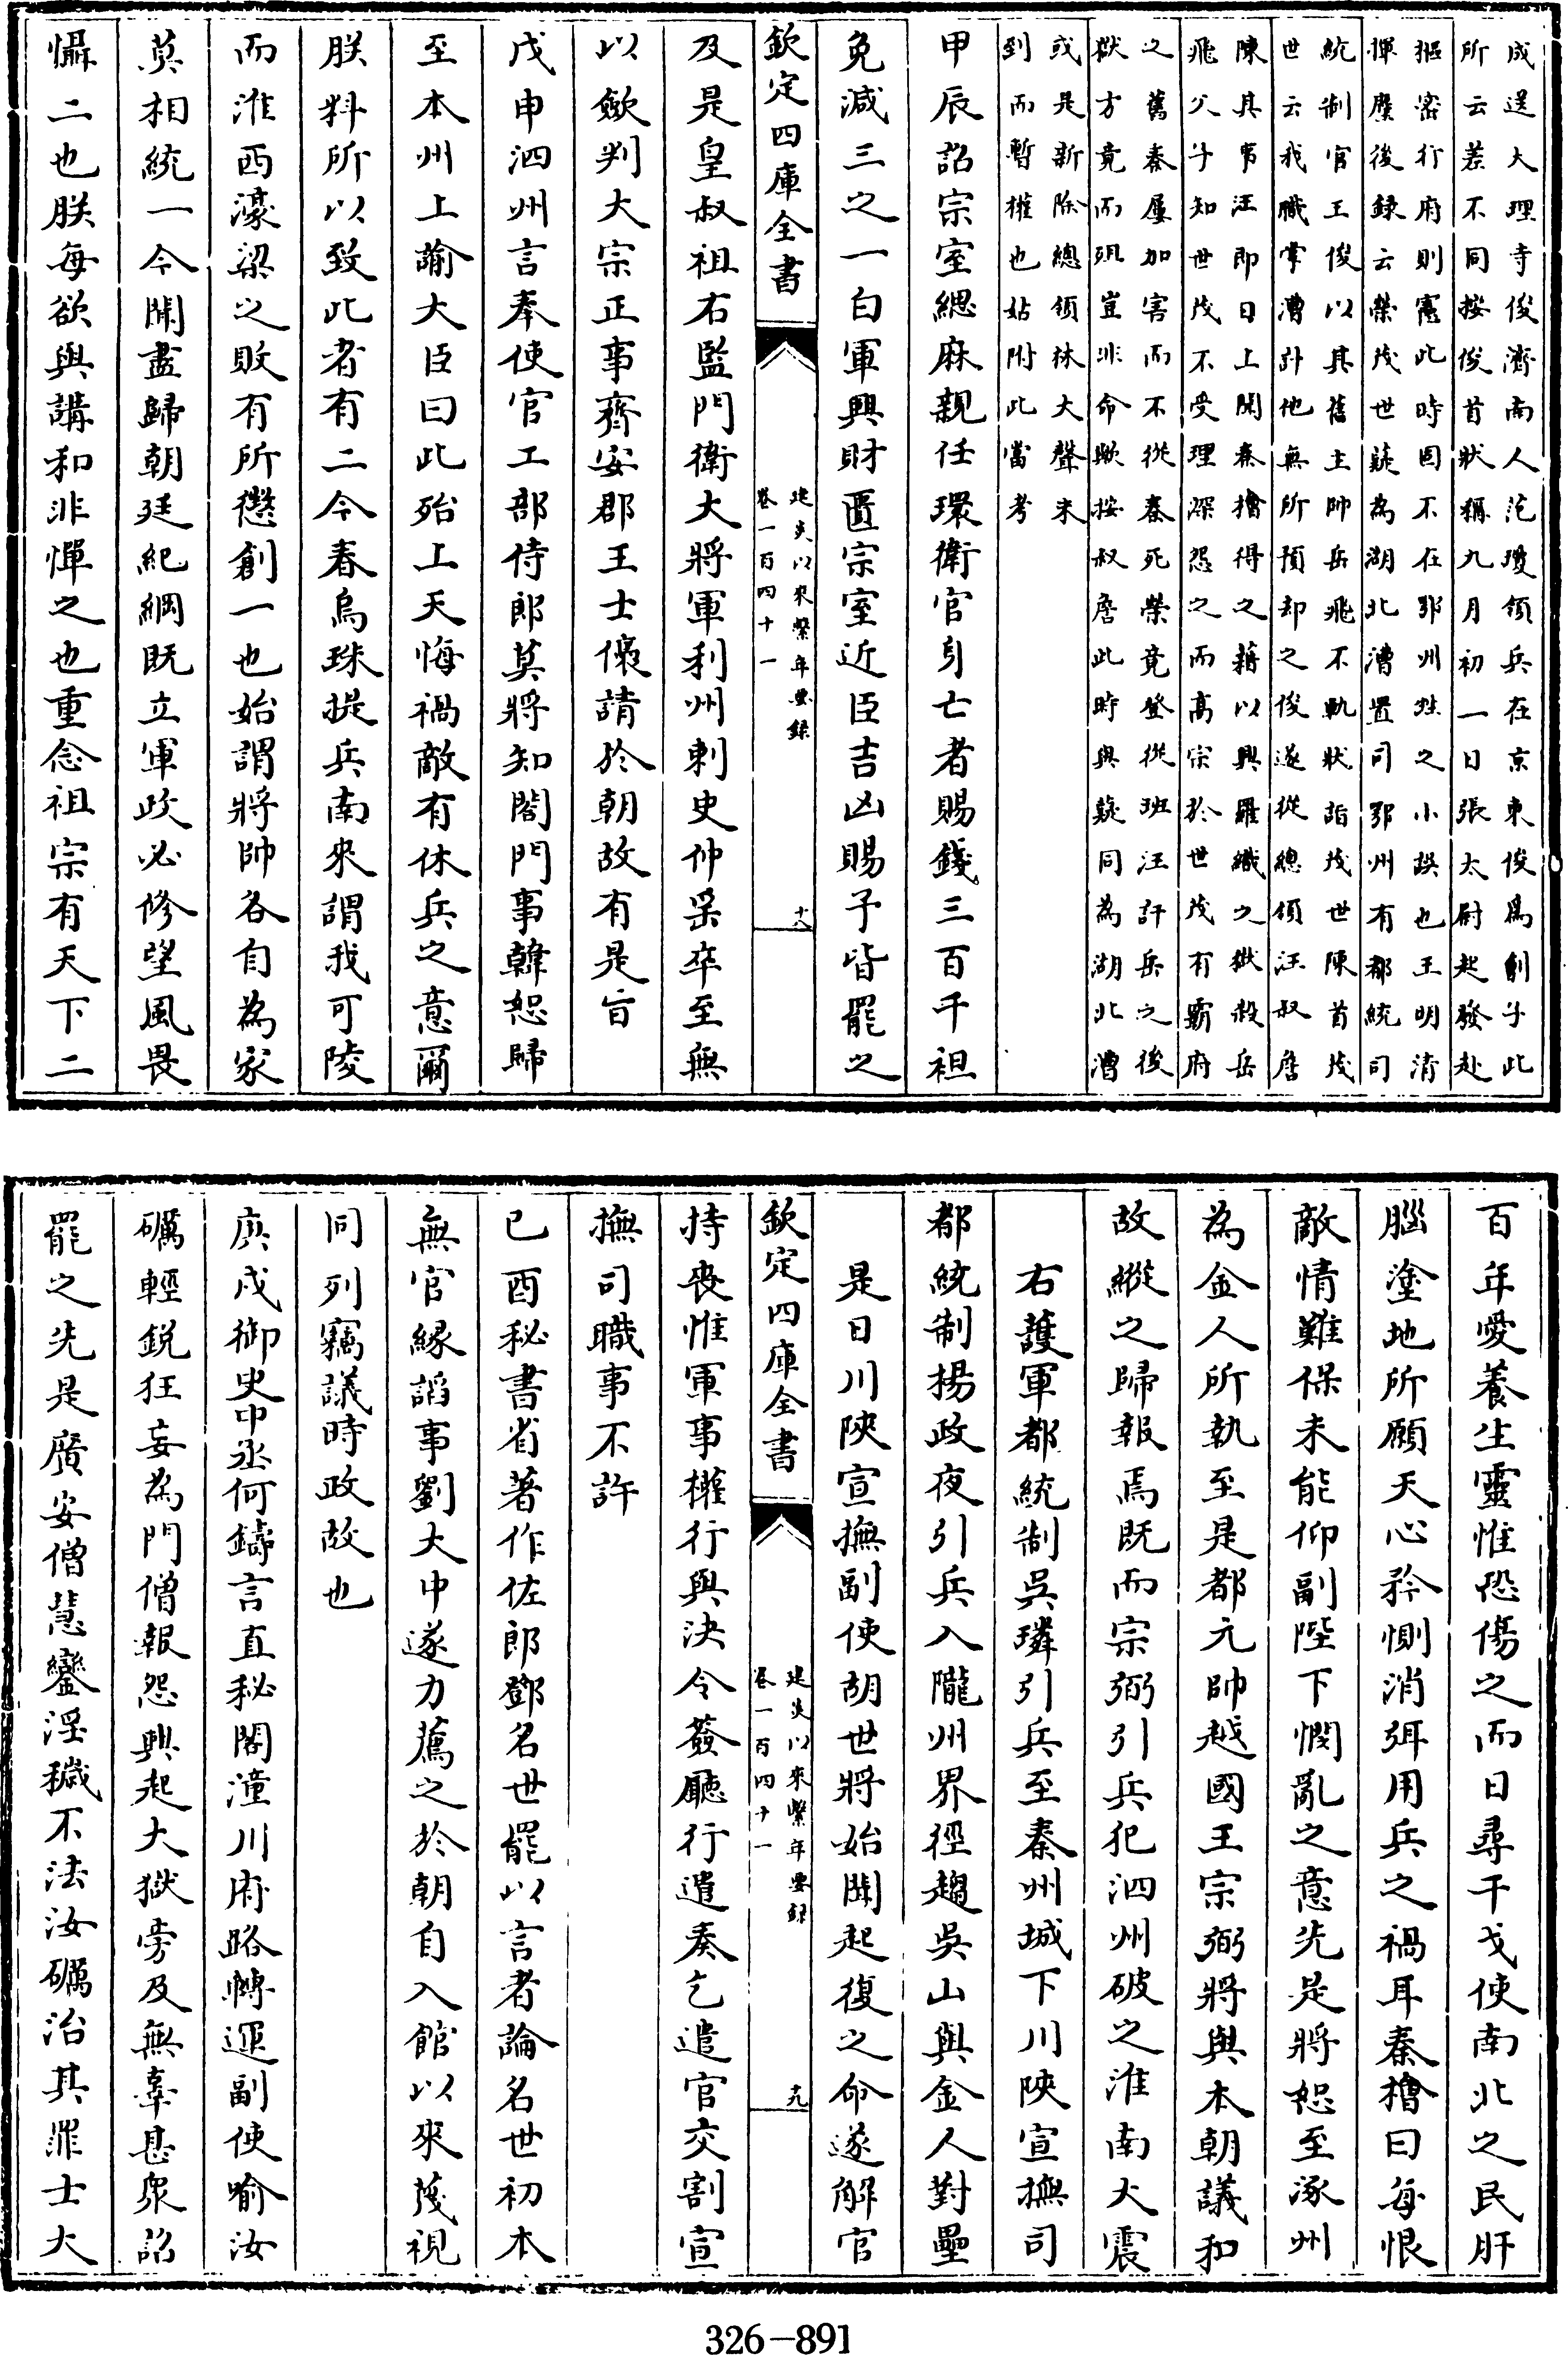 成送大理寺俊濟南人范瓊領兵在京東俊爲劊子此
所云差不同按俊首狀稱九月初一日張太尉起發赴
樞密行府則憲此時固不在鄂州姓之小誤也王明清
揮麈後錄云榮茂世薿為湖北漕置司鄂州有都統司
統制官王俊以其舊主帥岳飛不軌狀詣茂世陳首茂
世云我職掌漕計他無所預却之俊遂從總領汪叔詹
陳其事汪即日上聞秦檜得之藉以興羅織之獄殺岳
飛父子知世茂不受理深怨之而高宗於世茂有霸府
之舊秦屢加害而不從秦死榮竟登從班汪訐岳之後
獄方竟而殂豈非命歟按叔詹此時與薿同為湖北漕
或是新除總領林大聲未
到而暫權也姑附此當考
甲辰詔宗室緦麻親任環衛官身亡者賜錢三百千袒
免減三之一自軍興財匱宗室近臣吉凶賜予皆罷之
欽定四庫全書
建炎以來繫年要錄
卷一百四十一
十八
及是皇叔祖右監門衛大將軍利州刺史仲㮙卒至無
以歛判大宗正事齊安郡王士㒟請於朝故有是旨
戊申泗州言奉使官工部侍郎莫將知閤門事韓恕歸
至本州上諭大臣曰此殆上天悔禍敵有休兵之意爾
朕料所以致此者有二今春烏珠提兵南來謂我可陵
而淮西濠梁之敗有所懲創一也始謂將帥各自為家
莫相統一今聞盡歸朝廷紀綱既立軍政必修望風畏
懾二也朕每欲與講和非憚之也重念祖宗有天下二
百年愛養生靈惟恐傷之而日尋干戈使南北之民肝
腦塗地所願天心矜惻消弭用兵之禍耳秦檜曰每恨
敵情難保未能仰副陛下憫亂之意先是將恕至涿州
為金人所執至是都元帥越國王宗弼將與本朝議和
故縱之歸報焉既而宗弼引兵犯泗州破之淮南大震
右護軍都統制吳璘引兵至秦州城下川陝宣撫司
都統制楊政夜引兵入隴州界徑趨吳山與金人對壘
是日川陝宣撫副使胡世將始聞起復之命遂解官
欽定四庫全書
建炎以來繫年要錄
卷一百四十一
十九
持喪惟軍事權行與決令簽廳行遣奏乞遣官交割宣
撫司職事不許
己酉秘書省著作佐郎鄧名世罷以言者論名世初本
無官緣諂事劉大中遂力薦之於朝自入館以來蔑視
同列竊議時政故也
庚戌御史中丞何鑄言直秘閣潼川府路轉運副使喻汝
礪輕銳狂妄為門僧報怨興起大獄旁及無辜甚眾詔
罷之先是廣安僧慧鑾淫穢不法汝礪治其罪士大
326-891